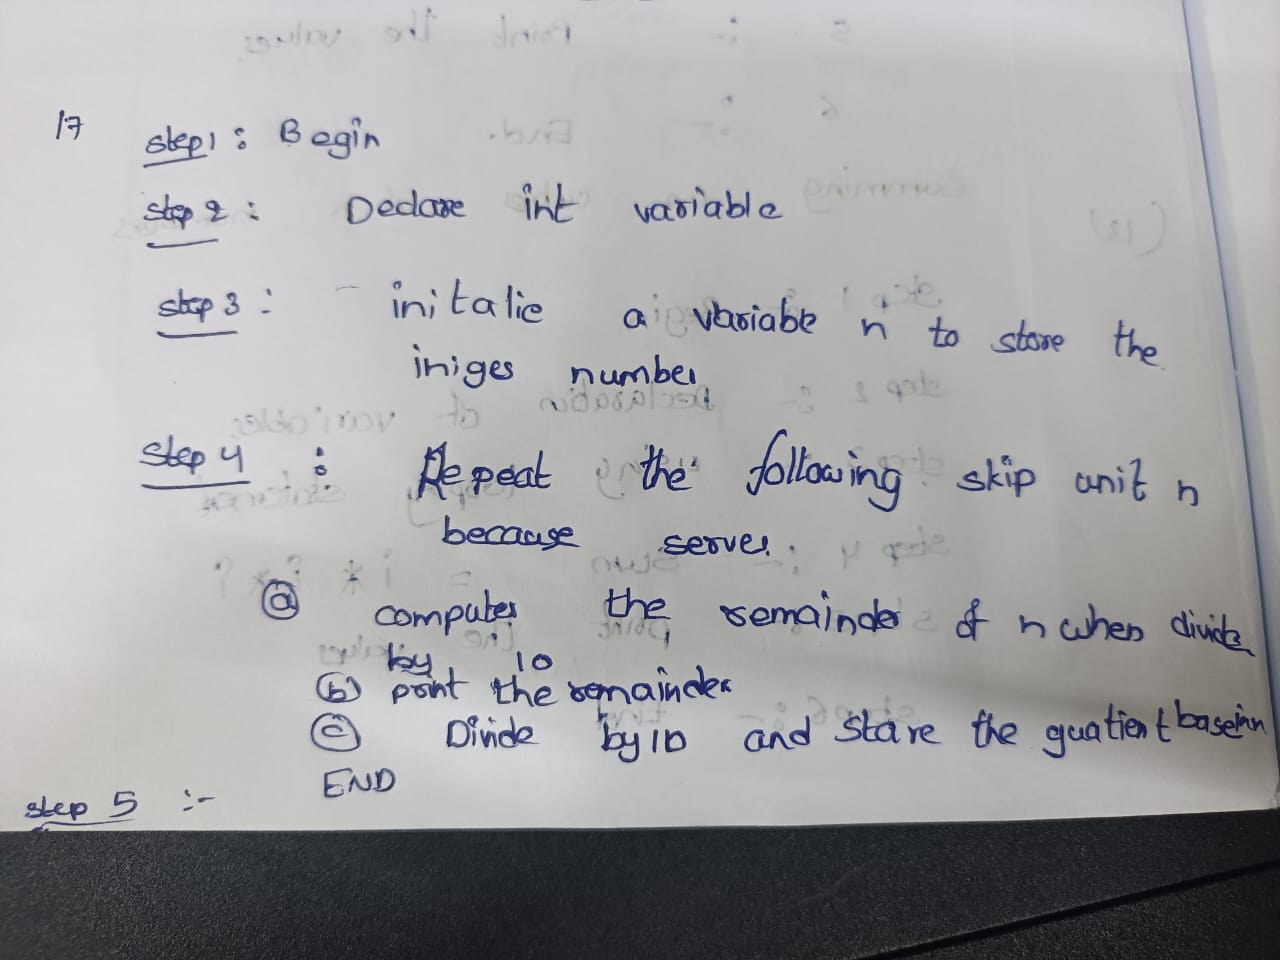 17
step 1 : Begin
step 2 : Declare int variable
step 3 : initalie a variable n to store the
iniges number
Step 4 : Repeat the following skip unit n
because serves
(a) computes the remainder of n when divide
by 10
(b) print the remainder
(c) Divide by 10 and Store the quatient base in n
step 5 :- END